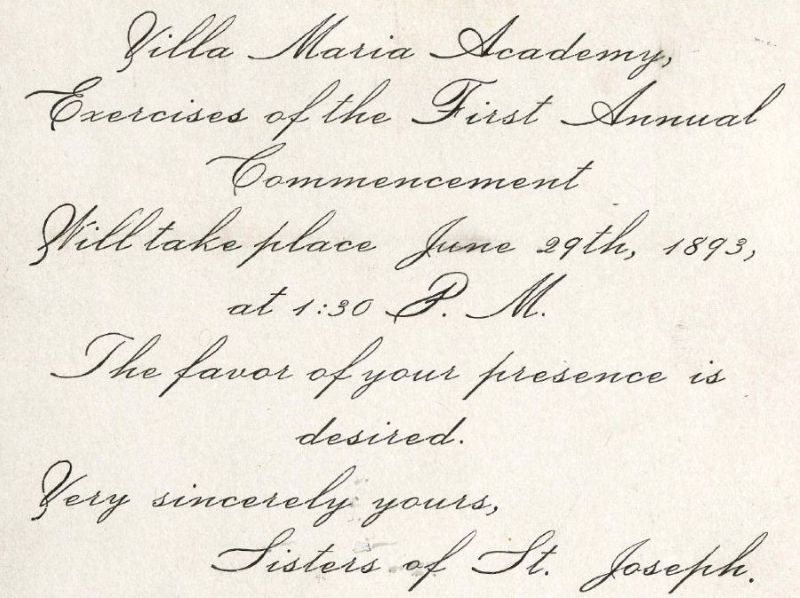 Villa Maria Academy,
Exercises of the First Annual
Commencement
Will take place June 29th, 1893,
at 1:30 P. M.
The favor of your presence is
desired.
Very sincerely yours,
Sisters of St. Joseph.